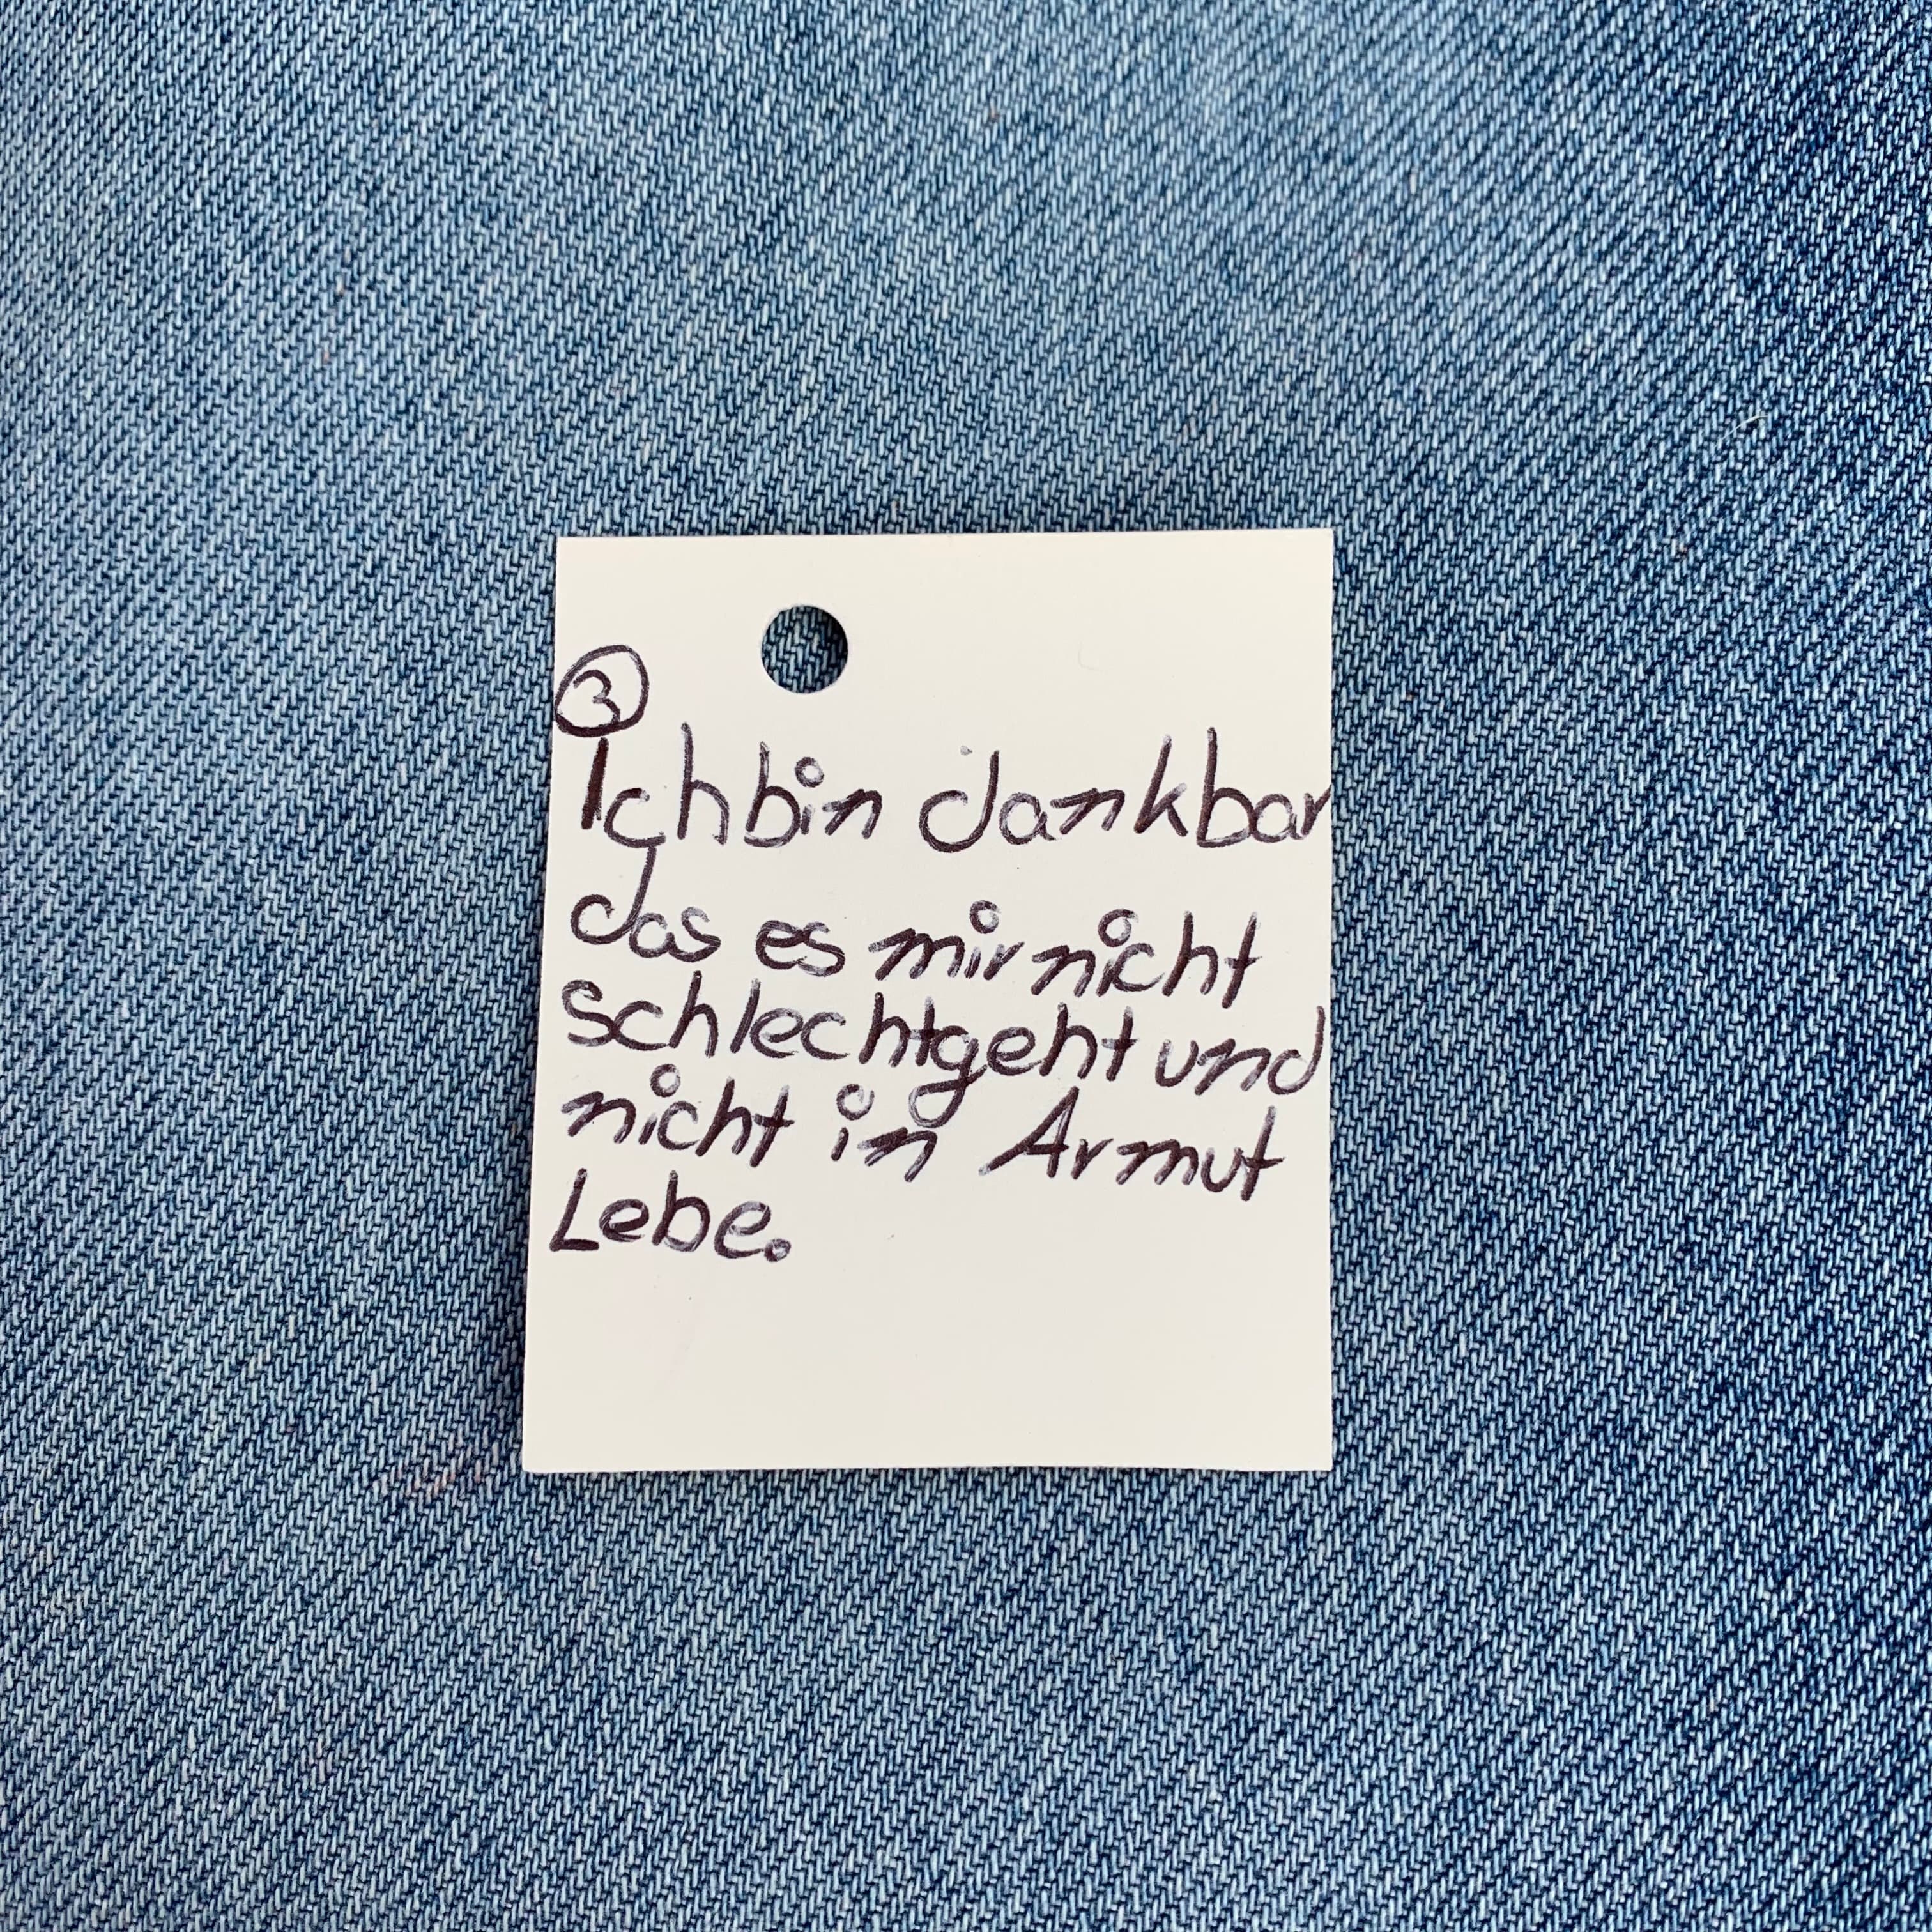 3
Ich bin dankbar
das es mir nicht
schlecht geht und
nicht in Armut
Lebe.